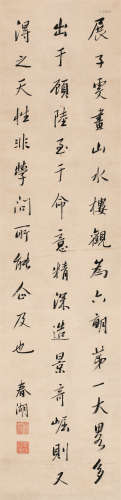 展子虔畫山水樓觀為六朝第一大略多
出于顧陸至于命意精深造景奇崛則又
得之天性非學問所能企及也
春湖